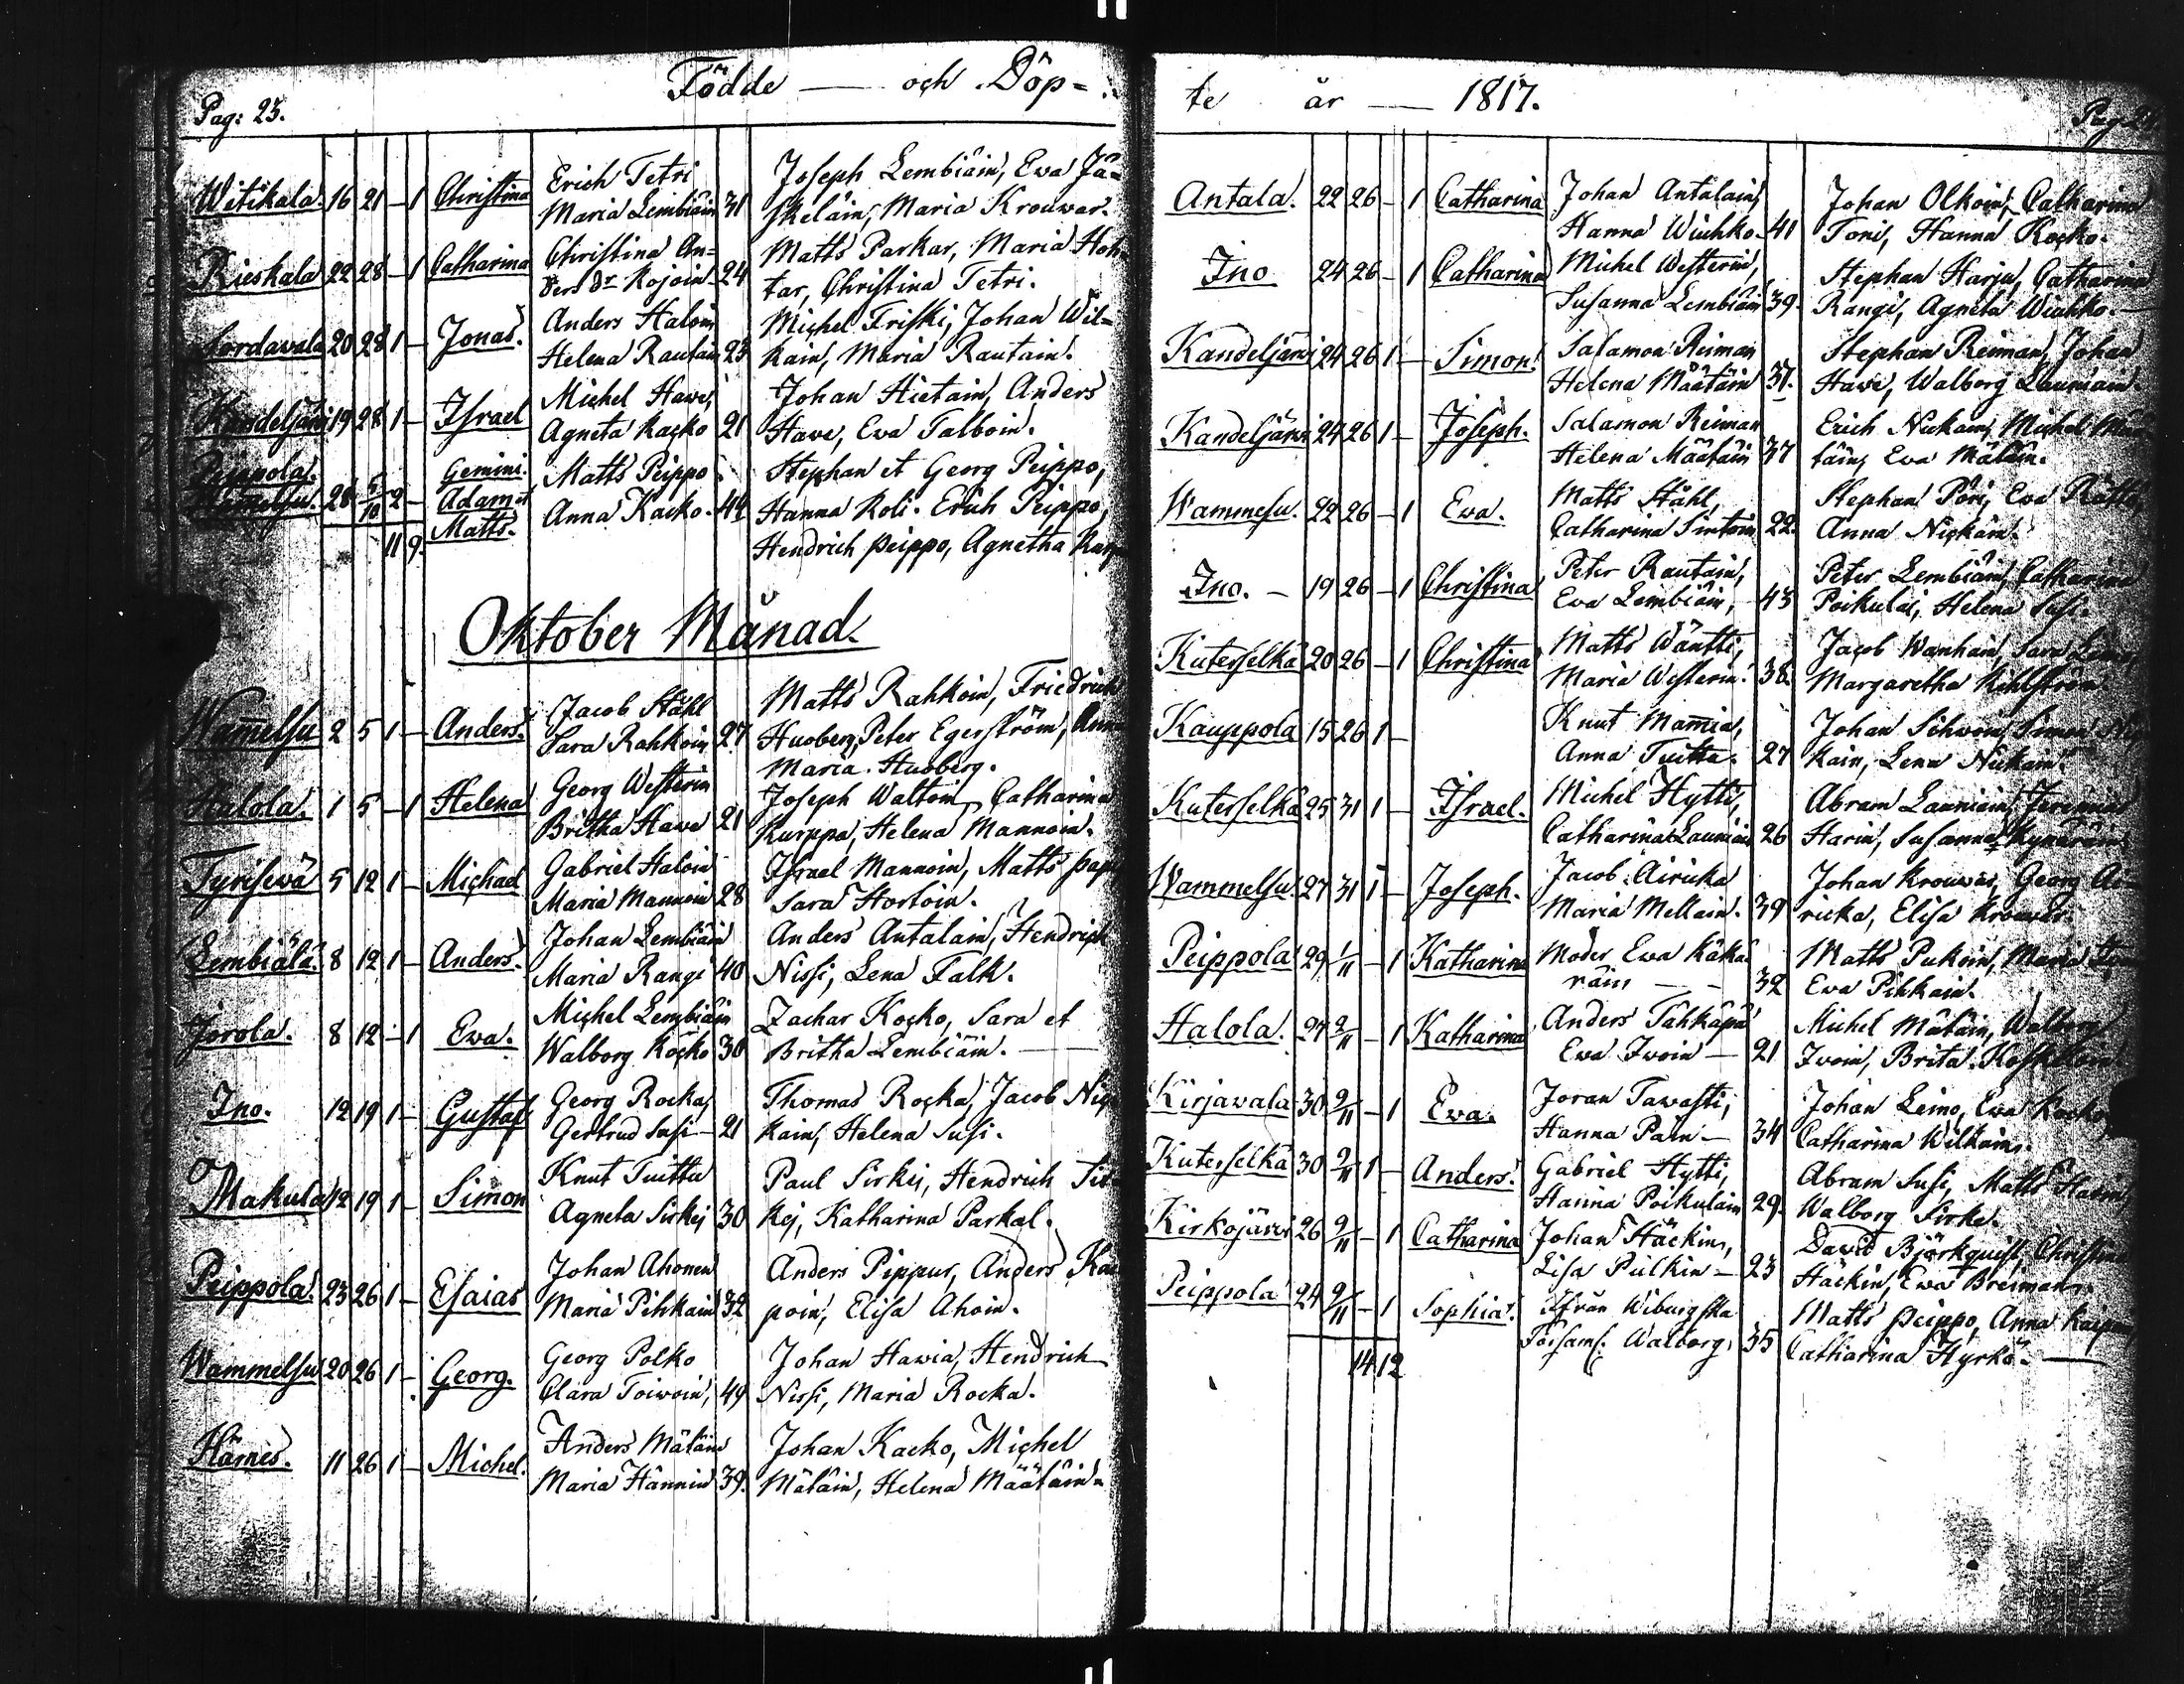 Födde — och Döp=
Pag: 23.
Witikala. 16 21 – 1 Christina Erich Tetri Joseph Lembiäin, Ewa Jä=
Maria Lembiäin 31 skeläin, Maria Krouwar.
Rieskala 22 28 – 1 Catharina Christina An= Matts Parkar, Maria Hoh
ders dr Kojoin 24 tar, Christina Tetri.
Sordavala 20 28 1 – Jonas. Anders Haloin Michel Friski, Johan Wil=
Helena Rautain 23 kain, Maria Rautain.
Kandeljärvi 19 28 1 – Israel Michel Hawe, Johan Hietain, Anders
Agneta Kacko 21 Have, Ewa Talboin.
Peippola. Gemini. Matts Peippo Stephan et Georg Peippo,
Wamelsu. 28 5/10 2 – Adam et Anna Kacko. 44 Hanna Koli. Erich Peippo,
11 9 Matts. Hendrich Peippo, Agnetha
Oktober Månad.
Wam̄elsu 2 5 1 – Anders. Jacob Ståhl Matts Rahkoin, Friedrich
Sara Rahkoin 27 Huoberg, Peter Egerström,
Maria Huoberg.
Halola. 1 5 – 1 Helena Georg Westerin Joseph Waltoin, Catharina
Britha Hawe 21 Kurppa, Helena Mannoin.
Tyrisewä 5 12 1 – Michael Gabriel Haloin Israel Mannoin, Matts
Maria Mannoin 28 Sara Hortoin.
Lembiälä. 8 12 1 – Anders. Johan Lembiäin Anders Antalain, Hendrich
Maria Rangi 40 Nissi, Lena Falk.
Jorola. 8 12 – 1 Ewa. Michel Lembiäin Zachar Kocko, Sara et
Walborg Kocko 30 Britha Lembiäin. —
Ino. 12 19 1 – Gustaf Georg Rocka, Thomas Rocka, Jacob
Gertrud Susi – 21 kain, Helena Susi.
Makula 12 19 1 – Simon Knut Tuitta Paul Sirkej, Hendrich Sir
Agneta Sirkej 30 kej, Katharina Parkal.
Peippola. 23 26 1 – Esaias Johan Ahonen Anders Pippur, Anders
Maria Pihkain 32 poin, Elisa Ahoin.
Wammelsu 20 26 1 – Georg. Georg Polko Johan Hawia, Hendrich
Clara Toiwoin, 49 Nissi, Maria Rocka.
Härnes. 11 26 1 – Michel. Anders Mäläin Johan Kacko, Michel
Maria Hännin 39. Mäläin, Helena Määtäin.
te år — 1817.
Antala. 22 26 – 1 Catharina Johan Antalain, Johan Olkoin, Catharina
Hanna Wiuhko 41 Toni, Hanna Kocko.
Ino 24 26 – 1 Catharina Michel Westerin, Stephan Harju, Catharina
Susanna Lembiäin 39. Rangi, Agneta Wiuhko.
Kandeljärvi 24 26 1 – Simon. Salamon Reiman Stephan Reiman, Johan
Helena Määtäin 37. Hawe, Walborg Launiain
Kandeljärvi 24 26 1 – Joseph. Salamon Reiman Erich Nickain, Michel
Helena Määtäin 37 täin, Ewa Mäläin.
Wammelsu. 22 26 – 1 Ewa. Matts Ståhl, Stephan Pöri, Ewa
Catharina Sintoin 22. Anna Nickäin.
Ino. – 19 26 – 1 Christina Peter Rautain, Peter Lembiäin, Catharina
Ewa Lembiäin, 43 Poikulai, Helena Susi.
Kuterselkä 20 26 – 1 Christina Matts Wäntti, Jacob Wanhain, Sara
Maria Westerin. 38. Margaretha Kihlström
Kauppola 15 26 1 – Knut Mam̄ia, Johan Sihwoin, Simon
Anna Tuitta. 27 kain, Lena Nickain.
Kuterselkä 25 31 1 – Israel. Michel Hytti, Abram Launiain, Jeremias
Catharina Launiain 26 Harin, Susanna
Wammelsu. 27 31 1 – Joseph. Jacob Airicka Johan Krouvar, Georg Ai=
Maria Mellain. 39 ricka, Elisa Krouver.
Peippola 29 1/11 – 1 Katharina Moder Ewa Käkä Matts Pukoin, Maria
räin – – 32 Ewa Pihkain.
Halola. 27 2/11 – 1 Katharina Anders Tähkäpä Michel Mäläin, Walborg
Ewa Iwoin – 21 Iwoin, Brita
Kirjavala 30 2/11 – 1 Ewa. Joran Tawasti, Johan Leino, Ewa Kocko,
Hanna Päin – 34 Catharina Wilkain.
Kuterselkä 30 2/11 1 – Anders. Gabriel Hytti, Abram Susi, Matts Harin,
Hanna Poikulain 29. Walborg Sirke.
Kirkojärvi 26 2/11 – 1 Catharina Johan Häckin, David Björkquist, Christina
Lisa Pulkin – 23 Häckin, Ewa Breiman.
Peippola 24 2/11 – 1 Sophia. Ifrån Wiburgska Matts Peippo, Anna
Församl. Walborg, 35 Catharina Hyrkö. —
14 12